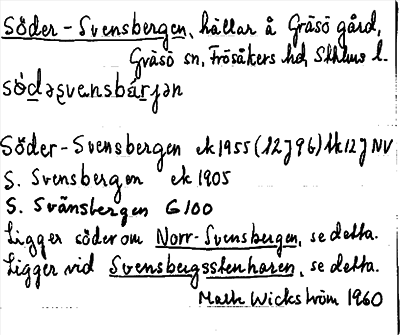 Söder-Svensbergen, hällar å Gräsö gård,
Gräsö sn, Frösåkers hd, Sthlms l.
Söder-Svensbergen ek 1955 (12J 96) tk 12J NV
S. Svensbergen ek 1905
S. Svänsbergen G 100
Ligger söder om Norr-Svensbergen, se detta.
Ligger vid Svensbergsstenharen, se detta.
Math Wickström 1960